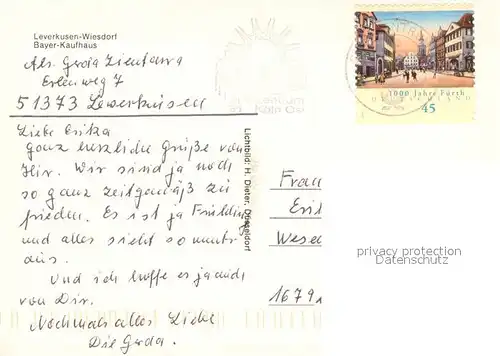 Leverkusen-Wiesdorf
Bayer-Kaufhaus
Abs. Gerda Zientarra
Erlenweg 7
51373 Leverkusen
Liebe Erika
ganz herzliche Grüße von
Hir. Wir sind ja noch
so ganz zeitgemäß zu
frieden. Es ist ja Frühling
und alles sieht so munter
aus.
Und ich hoffe es ja auch
von Dir.
Nochmals alles Liebe
Die Gerda.
Lichtbild: H. Dieter, Düsseldorf
1000 Jahre Fürth
45
Frau
Eri
Wese
1679
privacy protection
Datenschutz